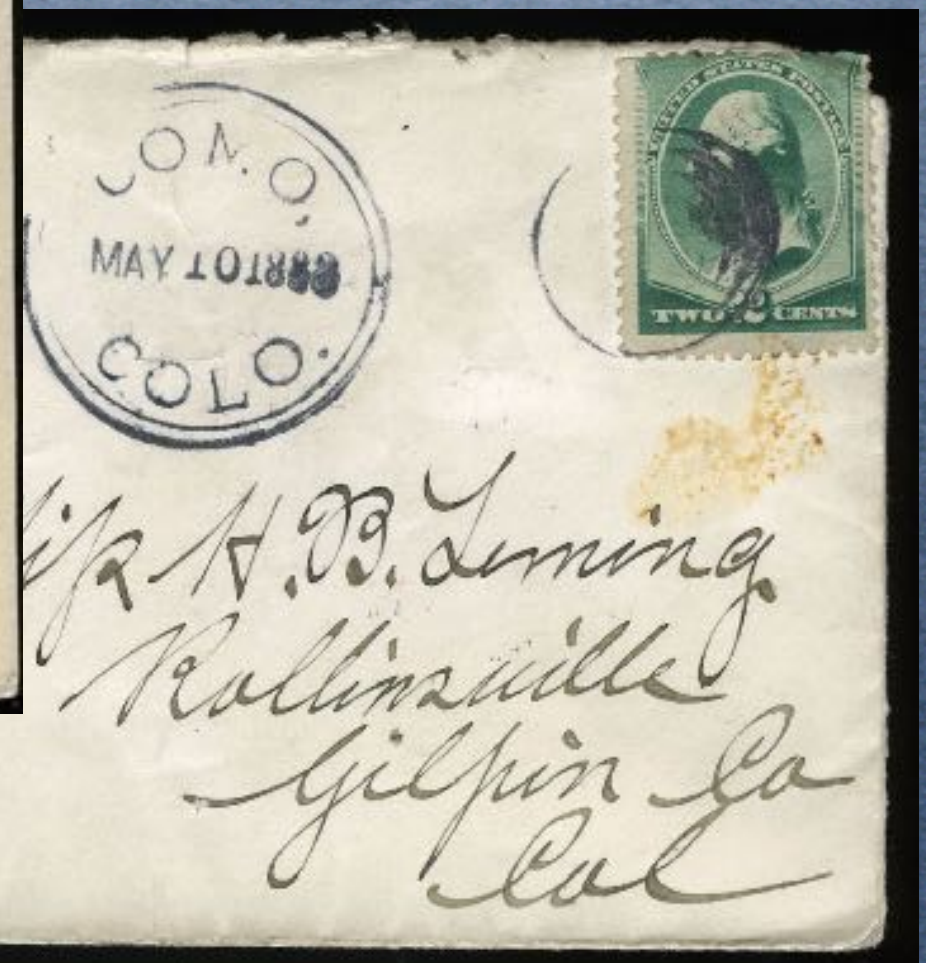 COMO,
MAY 10 1888
COLO.
UNITED STATES POSTAGE
TWO 2 CENTS
H. B. Leming
Rollinsville
Gilpin Co
Col